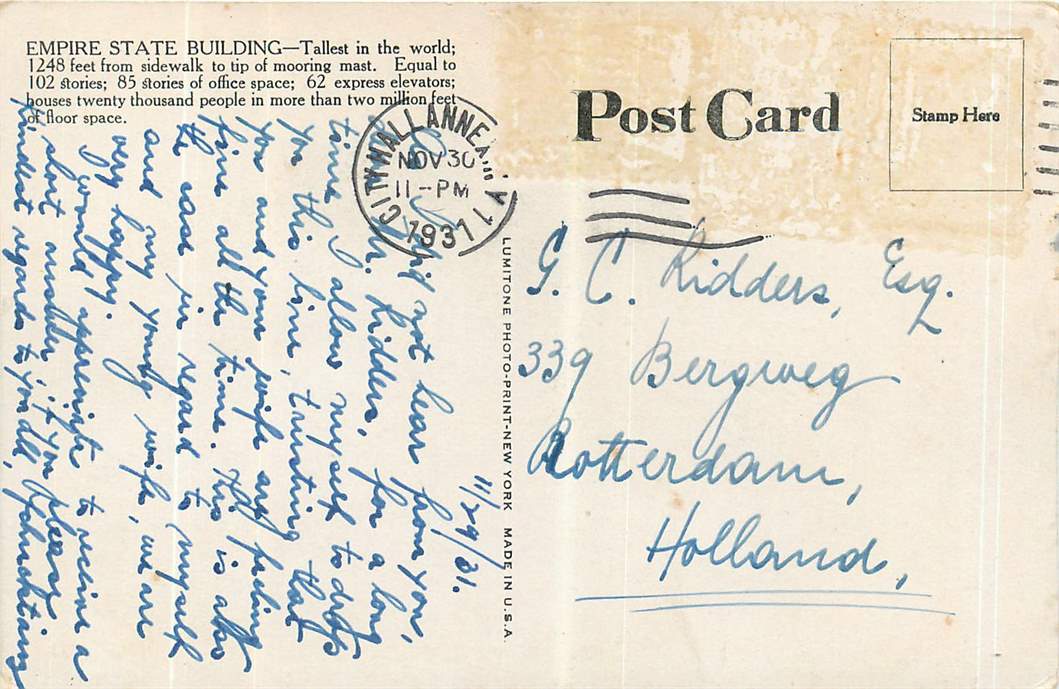 EMPIRE STATE BUILDING—Tallest in the world;
1248 feet from sidewalk to tip of mooring mast. Equal to
102 stories; 85 stories of office space; 62 express elevators;
houses twenty thousand people in more than two million feet
of floor space.
Post Card
Stamp Here
CITY HALL ANNEX
NOV 30
11-PM
1931
G. C. Ridders, Esq.
339 Bergweg
Rotterdam,
Holland,
LUMITONE PHOTO-PRINT-NEW YORK MADE IN U.S.A.
11/29/31.
Did not hear from you,
Mr. Ridders, for a long
time. I allow myself to drop
you this line, trusting that
you and your wife are feeling
fine all the time. This is also
the case in regard to myself
and my young wife, we are
very happy.
I would appreciate to receive a
short
if you please
Kindest regards to you all,